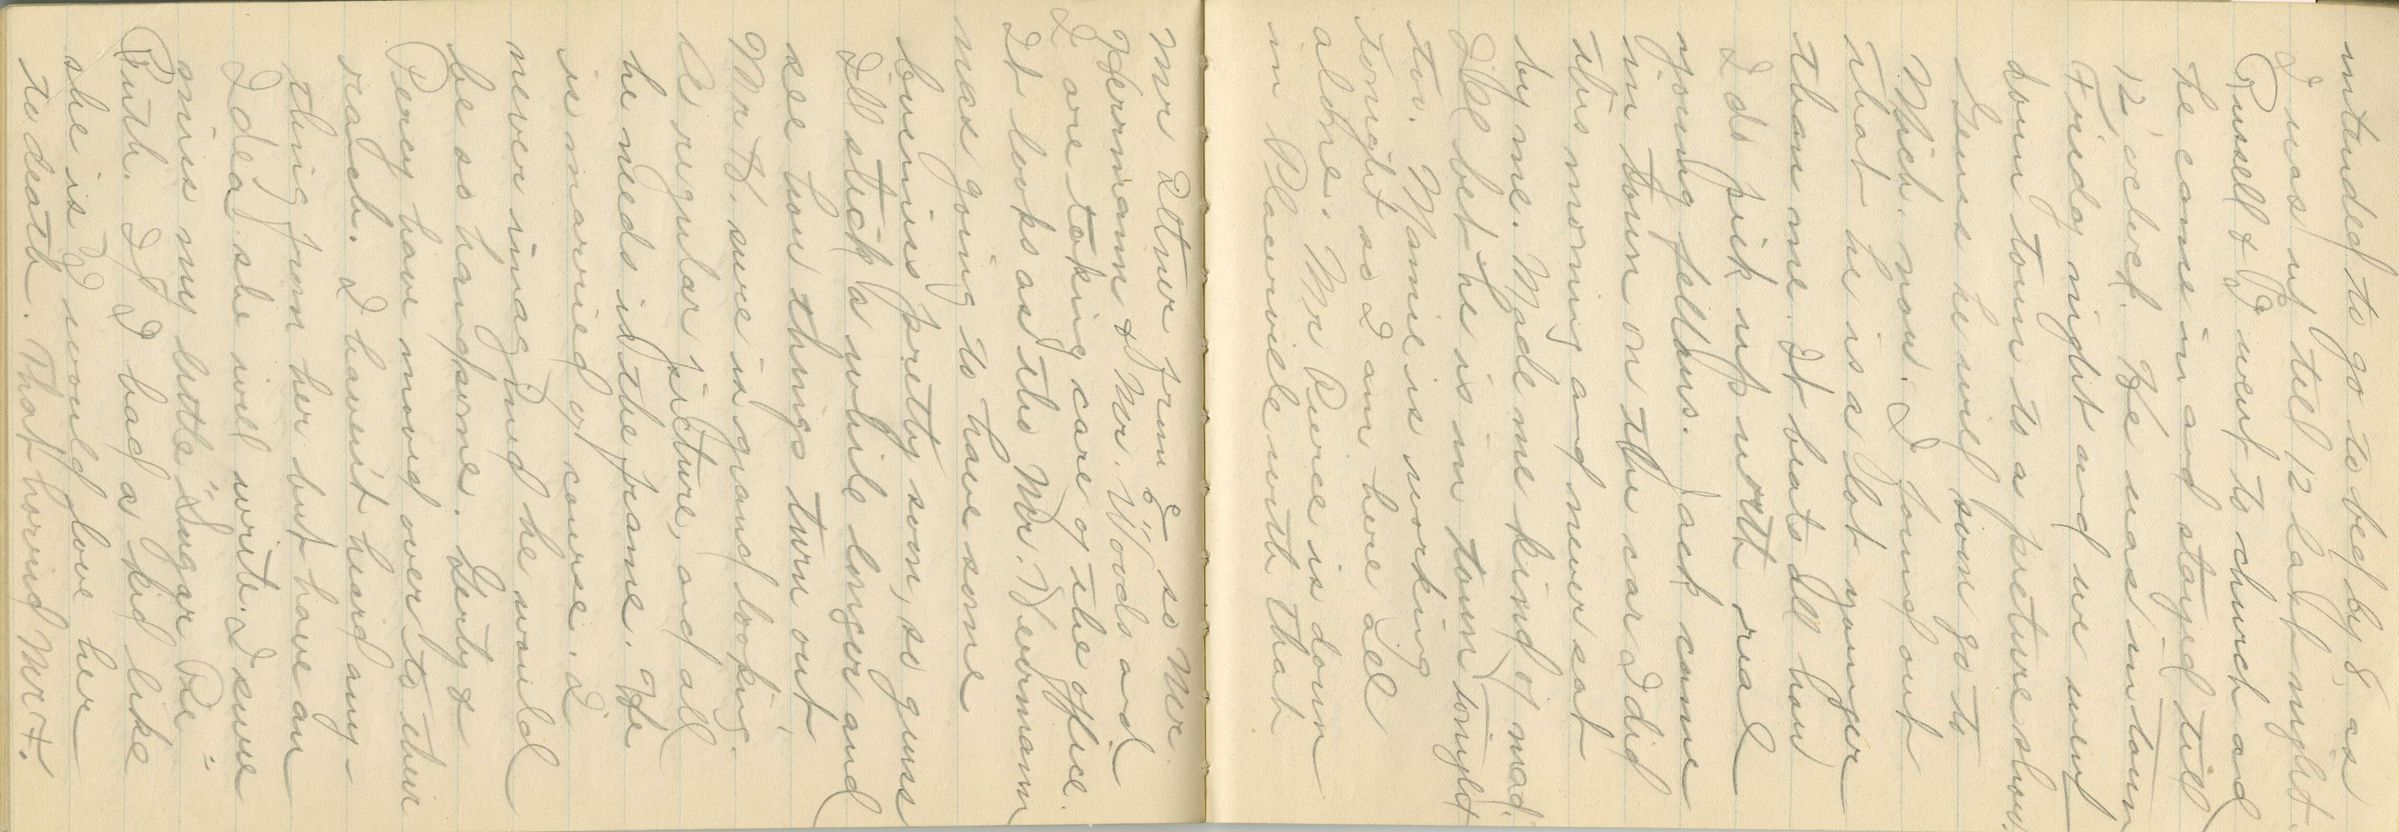 intended to go to bed by 8, as
I was up till 12 last night.
Russell & I went to church and
he came in and stayed till
12 o'clock. He was in town
Friday night and we went
down town to a picture show.
Guess he will soon go to
Mich. now. I found out
that he is a lot younger
than me. It beats all how
I do pick up with real
young fellows. Jack came
in town on the car I did
this morning and never sat
by me. Made me kind of mad.
I'll bet he is in town tonight
too. Mamie is working
tonight so I am here all
alone. Mr Price is down
in Plainville with that
Mr Ulner from E" so Mr.
Herrmann & Mr. Woods and
I are taking care of the office.
It looks as tho Mr. Herrmann
was going to have some
business pretty soon, so guess
I'll stick a while longer and
see how things turn out.
Mr H. sure is grand looking.
A regular picture, and all
he needs is the frame. He
is married of course. I
never imagined he would
be so handsome. Gerty &
Percy have moved over to their
ranch. I haven't heard any-
thing from her but have an
Idea she will write. I sure
miss my little "Sugar Pie"
Ruth. If I had a kid like
she is I would love her
to death. That horrid Mr H.